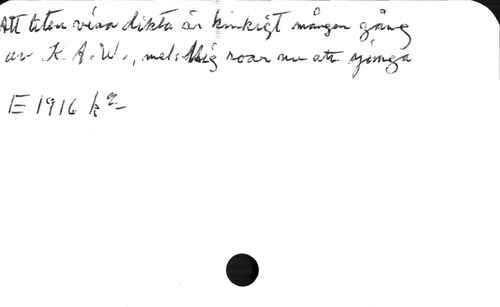 Att liten visa dikta är kinkigt mången gång
av K. A. W., mel: Mig roar nu att sjunga
E 1916 k2